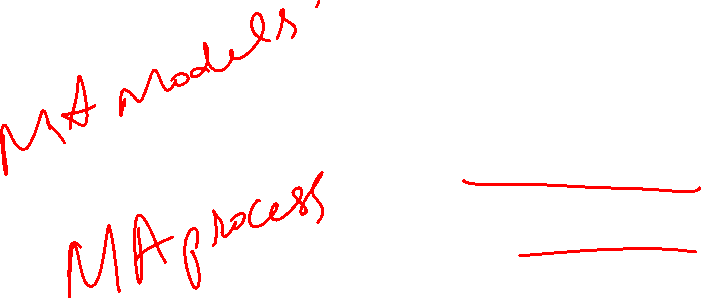 MA models
MA process